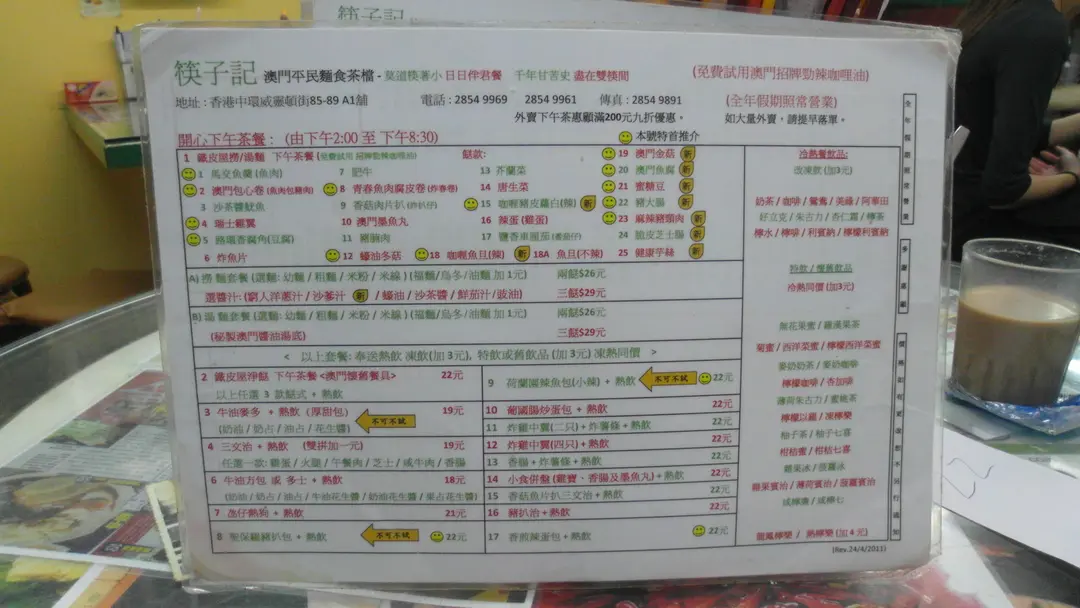 筷子記
筷子記 澳門平民麵食茶檔 - 莫道筷著小 日日伴君餐 千年甘苦史 盡在雙筷間 (免費試用澳門招牌勁辣咖喱油)
地址 : 香港中環威靈頓街85-89 A1舖 電話 : 2854 9969 2854 9961 傳真 : 2854 9891 (全年假期照常營業)
外賣下午茶惠顧滿200元九折優惠。 如大量外賣，請提早落單。
開心下午茶餐 : (由下午2:00 至 下午8:30) 本號特首推介
1 鐵皮屋撈/湯麵 下午茶餐 (免費試用 招牌勁辣咖喱油) 餸款:
1 馬交魚蘭 (魚肉) 7 肥牛 13 芥蘭菜 19 澳門金菇 新
2 澳門包心卷 (魚肉包豬肉) 8 青春魚肉腐皮卷 (炸春卷) 14 唐生菜 20 澳門魚腐 新
3 沙茶醬魷魚 9 香菇肉片扒 (炸扒仔) 15 咖喱豬皮蘿白(辣) 新 21 蜜糖豆 新
4 瑞士雞翼 10 澳門墨魚丸 16 辣蛋 (雞蛋) 22 豬大腸 新
5 路環香腐角(豆腐) 11 豬腩肉 17 鹽香車厘茄 (番茄仔) 23 麻辣豬頸肉 新
6 炸魚片 12 蠔油冬菇 18 咖喱魚旦(辣) 新 18A 魚旦(不辣) 24 脆皮芝士腸 新
25 健康芋絲 新
A) 撈 麵套餐 (選麵: 幼麵 / 粗麵 / 米粉 / 米線 ) (福麵/烏冬/油麵 加 1元) 兩餸$26元
選醬汁: (窮人洋蔥汁 / 沙爹汁 新 / 蠔油 / 沙茶醬 / 鮮茄汁 / 豉油) 三餸$29元
B) 湯 麵套餐 (選麵: 幼麵 / 粗麵 / 米粉 / 米線 ) (福麵/烏冬/油麵 加 1元) 兩餸$26元
(秘製澳門醬油湯底) 三餸$29元
< 以上套餐: 奉送熱飲 凍飲(加 3元), 特飲或舊飲品 (加 3元) 凍熱同價 >
2 鐵皮屋淨餸 下午茶餐 <澳門懷舊餐具> 22元
以上任選 3 款餸式 + 熱飲
3 牛油麥多 + 熱飲 (厚甜包) 不可不試 19元
(奶油 / 奶占 / 油占 / 花生醬)
4 三文治 + 熱飲 (雙拼加一元) 19元
任選一款: 雞蛋 / 火腿 / 午餐肉 / 芝士 / 咸牛肉 / 香腸
6 牛油方包 或 多士 + 熱飲 18元
(奶油 / 奶占 / 油占 / 牛油花生醬 / 奶油花生醬 / 果占花生醬)
7 氹仔熱狗 + 熱飲 21元
8 聖保羅豬扒包 + 熱飲 不可不試 22元
9 荷蘭園辣魚包(小辣) + 熱飲 不可不試 22元
10 葡國腸炒蛋包 + 熱飲 22元
11 炸雞中翼(二只) + 炸薯條 + 熱飲 22元
12 炸雞中翼(四只) + 熱飲 22元
13 香腸 + 炸薯條 + 熱飲 22元
14 小食併盤 (雞寶、香腸及墨魚丸) + 熱飲 22元
15 香菇魚片扒三文治 + 熱飲 22元
16 豬扒治 + 熱飲 22元
17 香煎辣蛋包 + 熱飲 22元
冷熱餐飲品:
改凍飲 (加3元)
奶茶 / 咖啡 / 鴛鴦 / 美祿 / 阿華田
好立克 / 朱古力 / 杏仁霜 / 檸茶
檸水 / 檸啡 / 利賓納 / 檸檬利賓納
特飲 / 懷舊飲品
冷熱同價 (加3元)
無花果蜜 / 羅漢菓茶
菊蜜 / 西洋菜蜜 / 檸檬西洋菜蜜
麥奶奶茶 / 麥奶咖啡
檸檬咖啡 / 杏加啡
薄荷朱古力 / 蜜桃茶
檸檬以羅 / 凍檸樂
柚子茶 / 柚子七喜
柑桔蜜 / 柑桔七喜
蘋果冰 / 菠蘿冰
蘋果賓治 / 薄荷賓治 / 菠蘿賓治
咸檸鹽 / 咸檸七
龍鳳檸樂 / 熱檸樂 (加 4元)
全年假期照常營業
多謝惠顧
(Rev.24/4/2011)